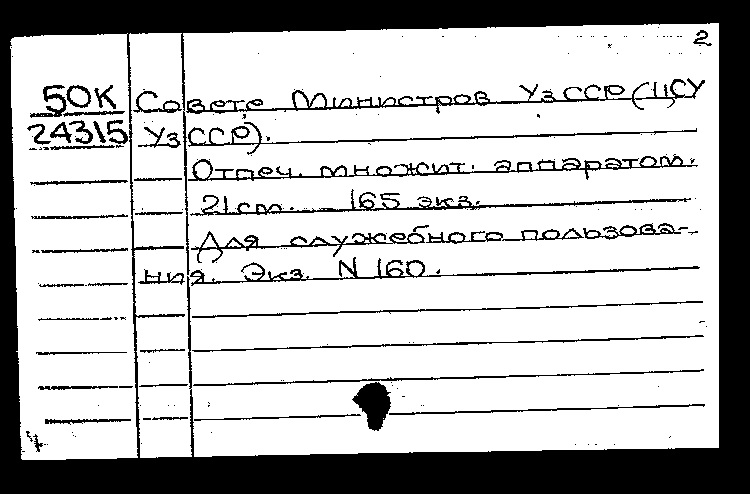 2
50К Совете Министров УзССР (ЦСУ
24315 УзССР).
Отпеч. множит. аппаратом.
21 cm. 165 экз.
Для служебного пользова-
ния. Экз. N 160.